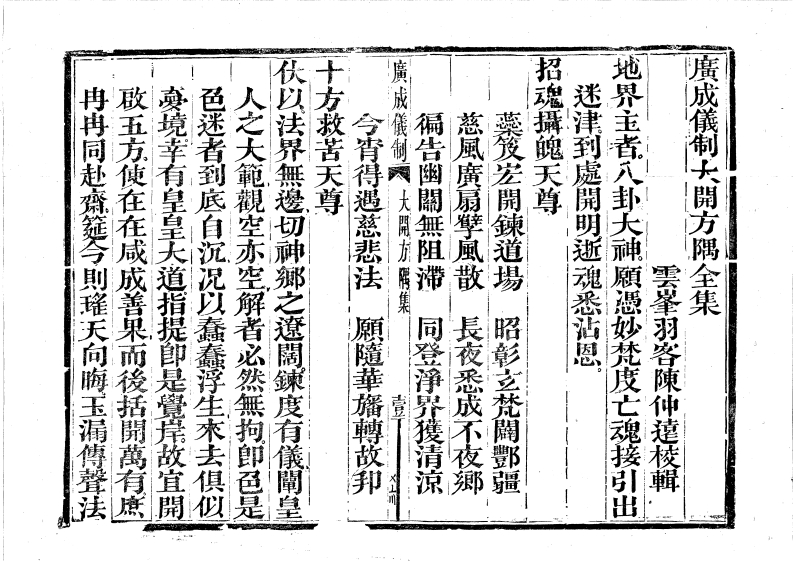 廣成儀制大開方隅全集
雲峯羽客陳仲遠校輯
地界主者。八卦大神。願憑妙梵度亡魂接引出
迷津。到處開明逝魂悉沾恩。
招魂攝魄天尊
蘂笈宏開鍊道場　昭彰玄梵闢酆疆
慈風廣扇孽風散　長夜悉成不夜鄉
徧告幽關無阻滯　同登淨界獲清涼
今宵得遇慈悲法　願隨華旛轉故邦
廣成儀制　大開方隅集　壹
十方救苦天尊
伏以。法界無邊。切神鄉之遼闊。鍊度有儀。闡皇
人之大範。觀空亦空。解者必然無拘。卽色是
色。迷者到底自沉。况以蠢蠢浮生。來去俱似
夢境。幸有皇皇大道。指提卽是覺岸。故宜開
啟五方。使在在咸成善果。而後括開萬有。庶
冉冉同赴齋筵。今則瑤天向晦。玉漏傳聲。法